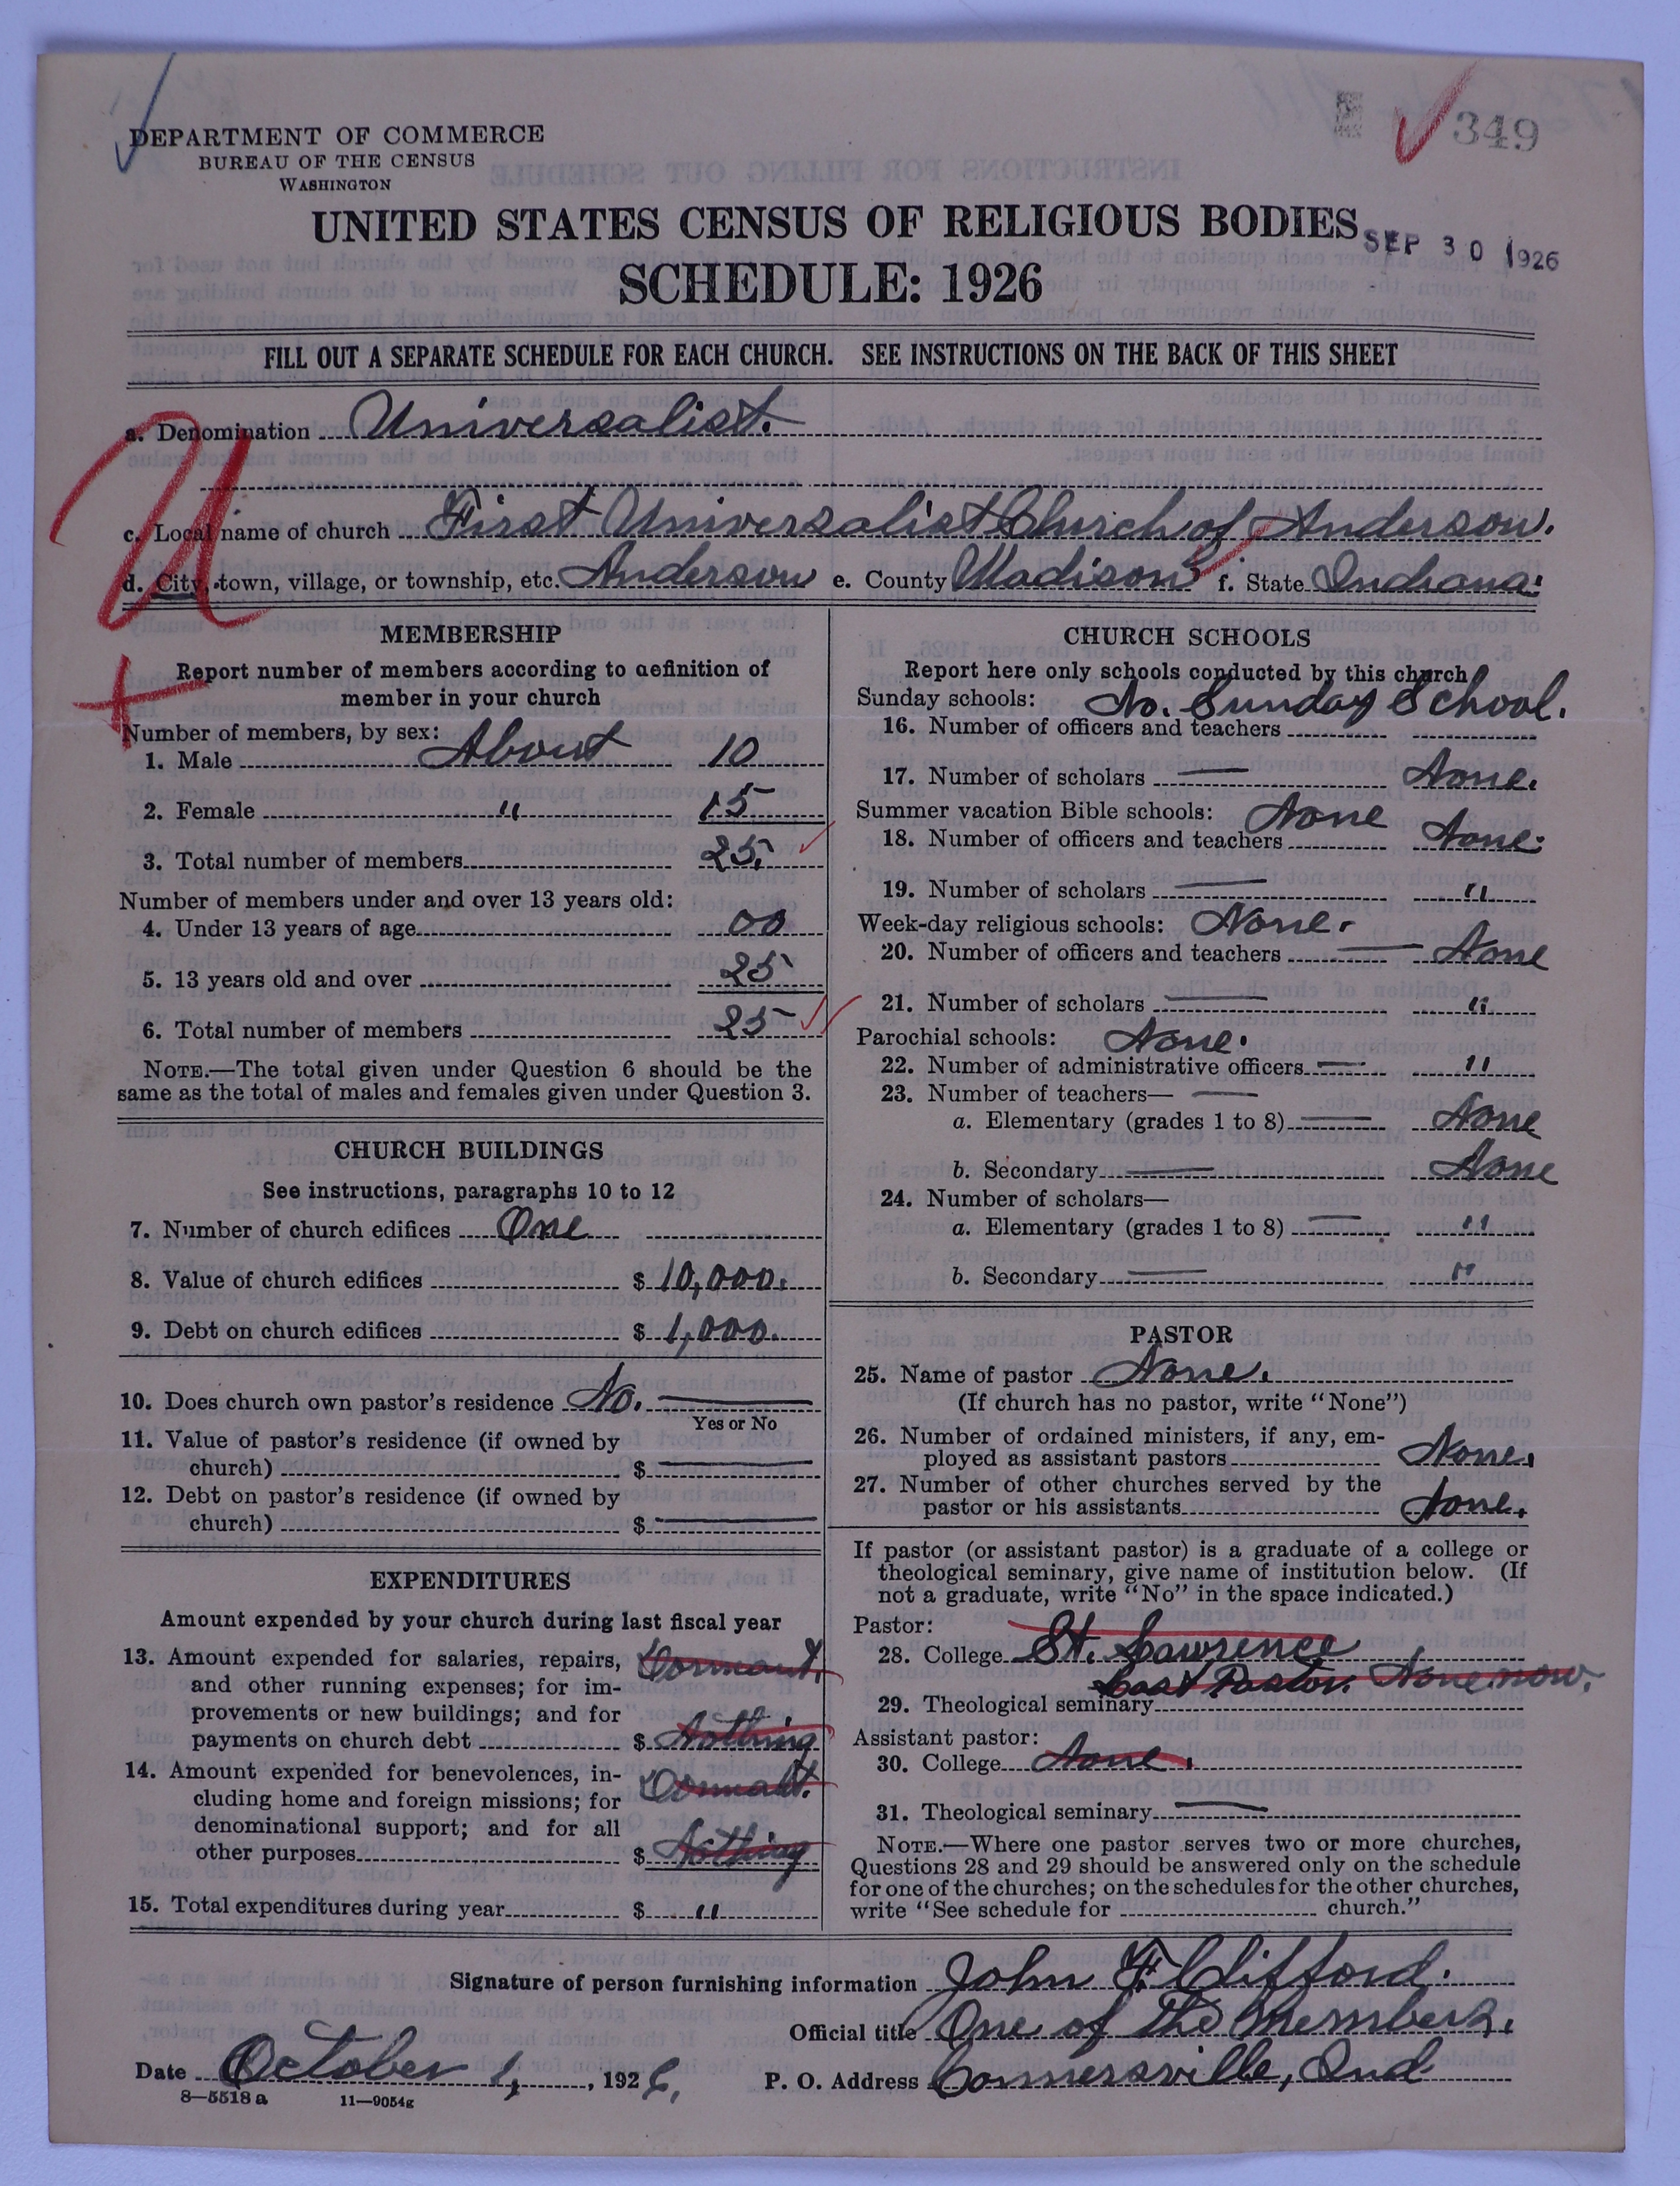 349
DEPARTMENT OF COMMERCE
BUREAU OF THE CENSUS
WASHINGTON
UNITED STATES CENSUS OF RELIGIOUS BODIES
SEP 30 1926
SCHEDULE: 1926
FILL OUT A SEPARATE SCHEDULE FOR EACH CHURCH. SEE INSTRUCTIONS ON THE BACK OF THIS SHEET
U
a. Denomination Universalist.
c. Local name of church First Universalist Church of Anderson.
d. City, town, village, or township, etc. Anderson e. County Madison f. State Indiana.
MEMBERSHIP
Report number of members according to definition of
member in your church
Number of members, by sex:
1. Male About 10
2. Female " 15
3. Total number of members 25.
Number of members under and over 13 years old:
4. Under 13 years of age 00
5. 13 years old and over 25
6. Total number of members 25
NOTE.—The total given under Question 6 should be the
same as the total of males and females given under Question 3.
CHURCH BUILDINGS
See instructions, paragraphs 10 to 12
7. Number of church edifices One
8. Value of church edifices $ 10,000.
9. Debt on church edifices $ 1,000.
10. Does church own pastor's residence No.
Yes or No
11. Value of pastor's residence (if owned by
church) $
12. Debt on pastor's residence (if owned by
church) $
EXPENDITURES
Amount expended by your church during last fiscal year
13. Amount expended for salaries, repairs, Dormant.
and other running expenses; for im-
provements or new buildings; and for
payments on church debt $ Nothing
14. Amount expended for benevolences, in-
cluding home and foreign missions; for
denominational support; and for all
other purposes $ Nothing
15. Total expenditures during year $ "
CHURCH SCHOOLS
Report here only schools conducted by this church
Sunday schools: No. Sunday School.
16. Number of officers and teachers
17. Number of scholars — None.
Summer vacation Bible schools: None
18. Number of officers and teachers None.
19. Number of scholars — "
Week-day religious schools: None.
20. Number of officers and teachers — None
21. Number of scholars — "
Parochial schools: None.
22. Number of administrative officers — "
23. Number of teachers— —
a. Elementary (grades 1 to 8) — None
b. Secondary — None
24. Number of scholars—
a. Elementary (grades 1 to 8) — "
b. Secondary — "
PASTOR
25. Name of pastor None.
(If church has no pastor, write "None")
26. Number of ordained ministers, if any, em-
ployed as assistant pastors None.
27. Number of other churches served by the
pastor or his assistants None.
If pastor (or assistant pastor) is a graduate of a college or
theological seminary, give name of institution below. (If
not a graduate, write "No" in the space indicated.)
Pastor:
28. College St. Lawrence
Last Pastor. None now.
29. Theological seminary
Assistant pastor:
30. College None.
31. Theological seminary —
NOTE.—Where one pastor serves two or more churches,
Questions 28 and 29 should be answered only on the schedule
for one of the churches; on the schedules for the other churches,
write "See schedule for church."
Signature of person furnishing information John F. Clifford.
Official title One of the Members.
Date October 1, 1926, P. O. Address Connersville, Ind
8—5518 a 11—9054g